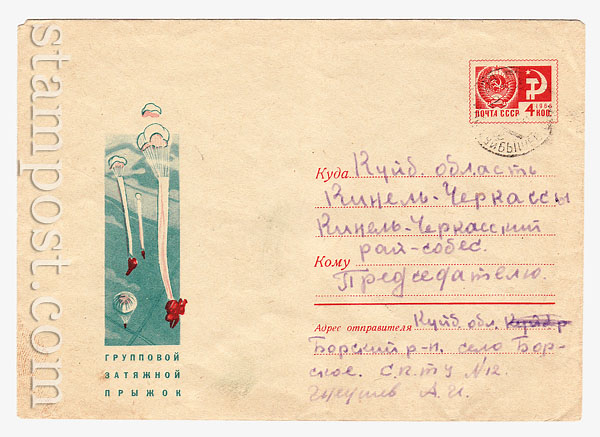 stampost.com
1966
ПОЧТА СССР 4 КОП.
Куда Куйб область
Кинель-Черкассы
Кинель-Черкасский
рай-собес.
Кому Председателю.
Адрес отправителя Куйб обл.
Борский р-н. село Бор-
ское. С.п.ту N12.
А.И.
ГРУППОВОЙ
ЗАТЯЖНОЙ
ПРЫЖОК